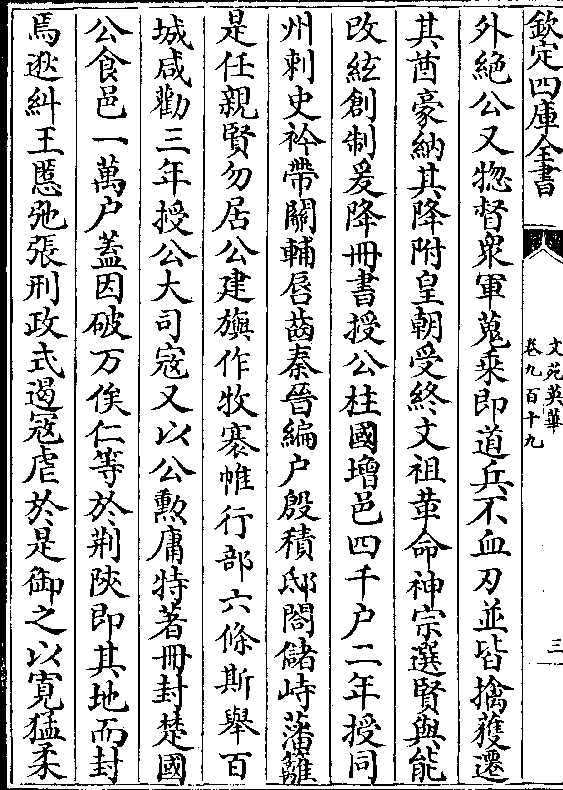 欽定四庫全書
文苑英華
卷九百十九
三
外絶公又惣督衆軍蒐乘即道兵不血刃並皆擒獲遷
其酋豪納其降附皇朝受終文祖革命神宗選賢與能
改絃創制爰降冊書授公柱國增邑四千户二年授同
州刺史衿帶關輔唇齒秦晉編户殷積邸閣儲峙藩籬
是任親賢勿居公建旟作牧褰帷行部六條斯舉百
城咸勸三年授公大司寇又以公勲庸特著冊封楚國
公食邑一萬户蓋因破万俟仁等於荆陜即其地而封
焉逖糾王慝弛張刑政式遏寇虐於是御之以寛猛柔